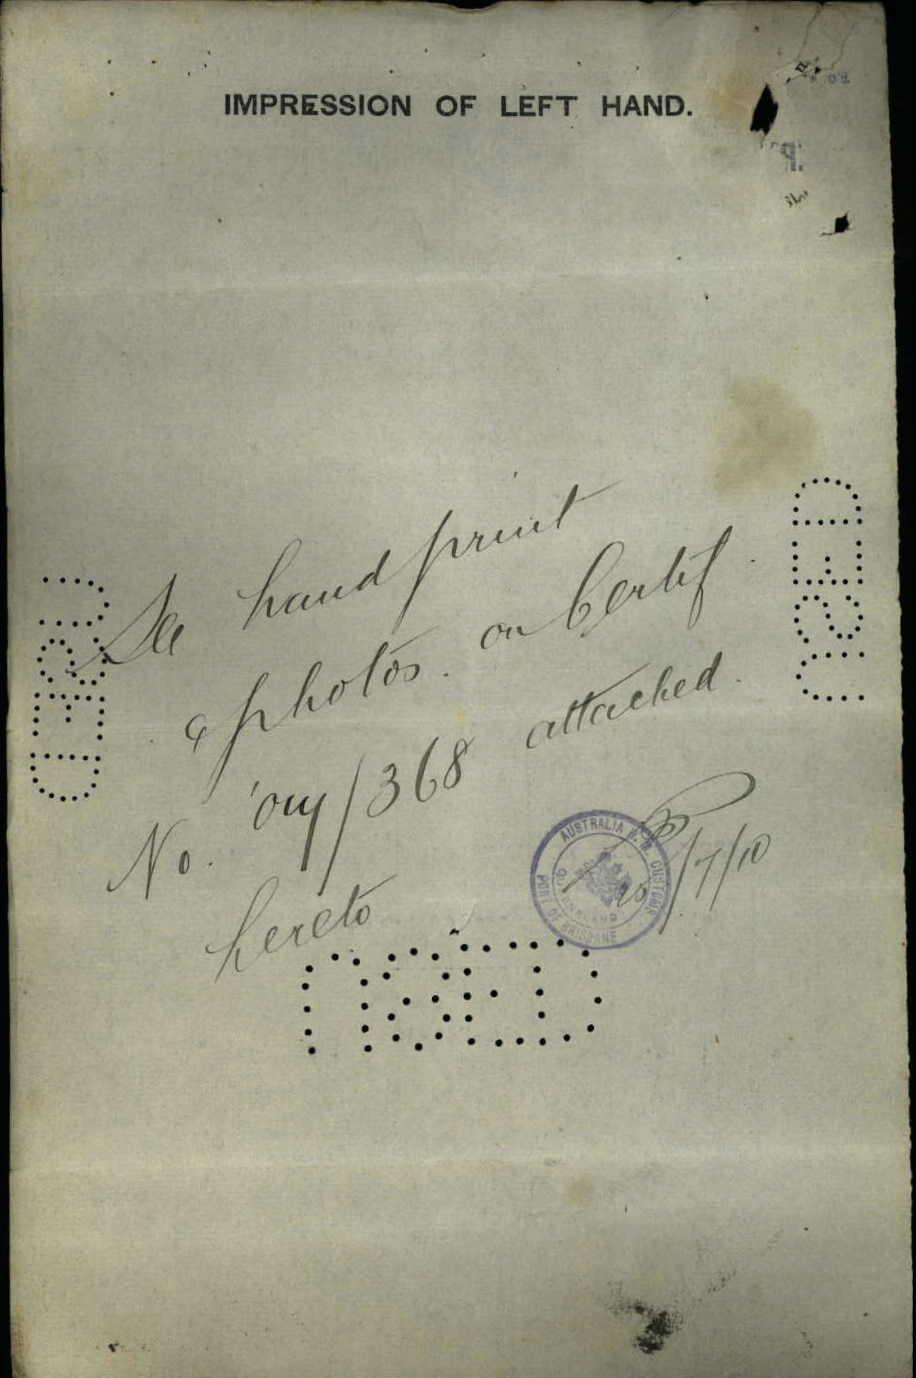 IMPRESSION OF LEFT HAND.
See hand print
& photos. on Certif
No. 'oy/368 attached.
hereto
25/7/10
AUSTRALIA H.M. CUSTOMS
QUEENSLAND
PORT OF BRISBANE
USED
USED
USED